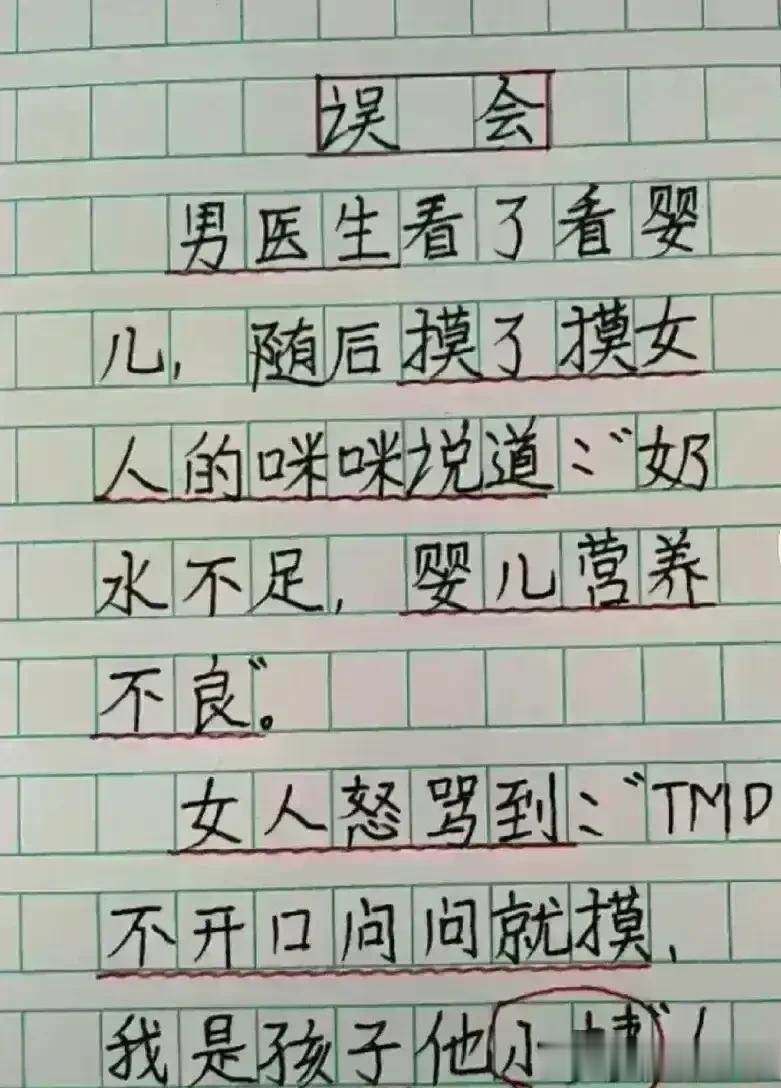 误会
男医生看了看婴
儿，随后摸了摸女
人的咪咪说道：“奶
水不足，婴儿营养
不良”。
女人怒骂到：“TMD
不开口问问就摸，
我是孩子他小